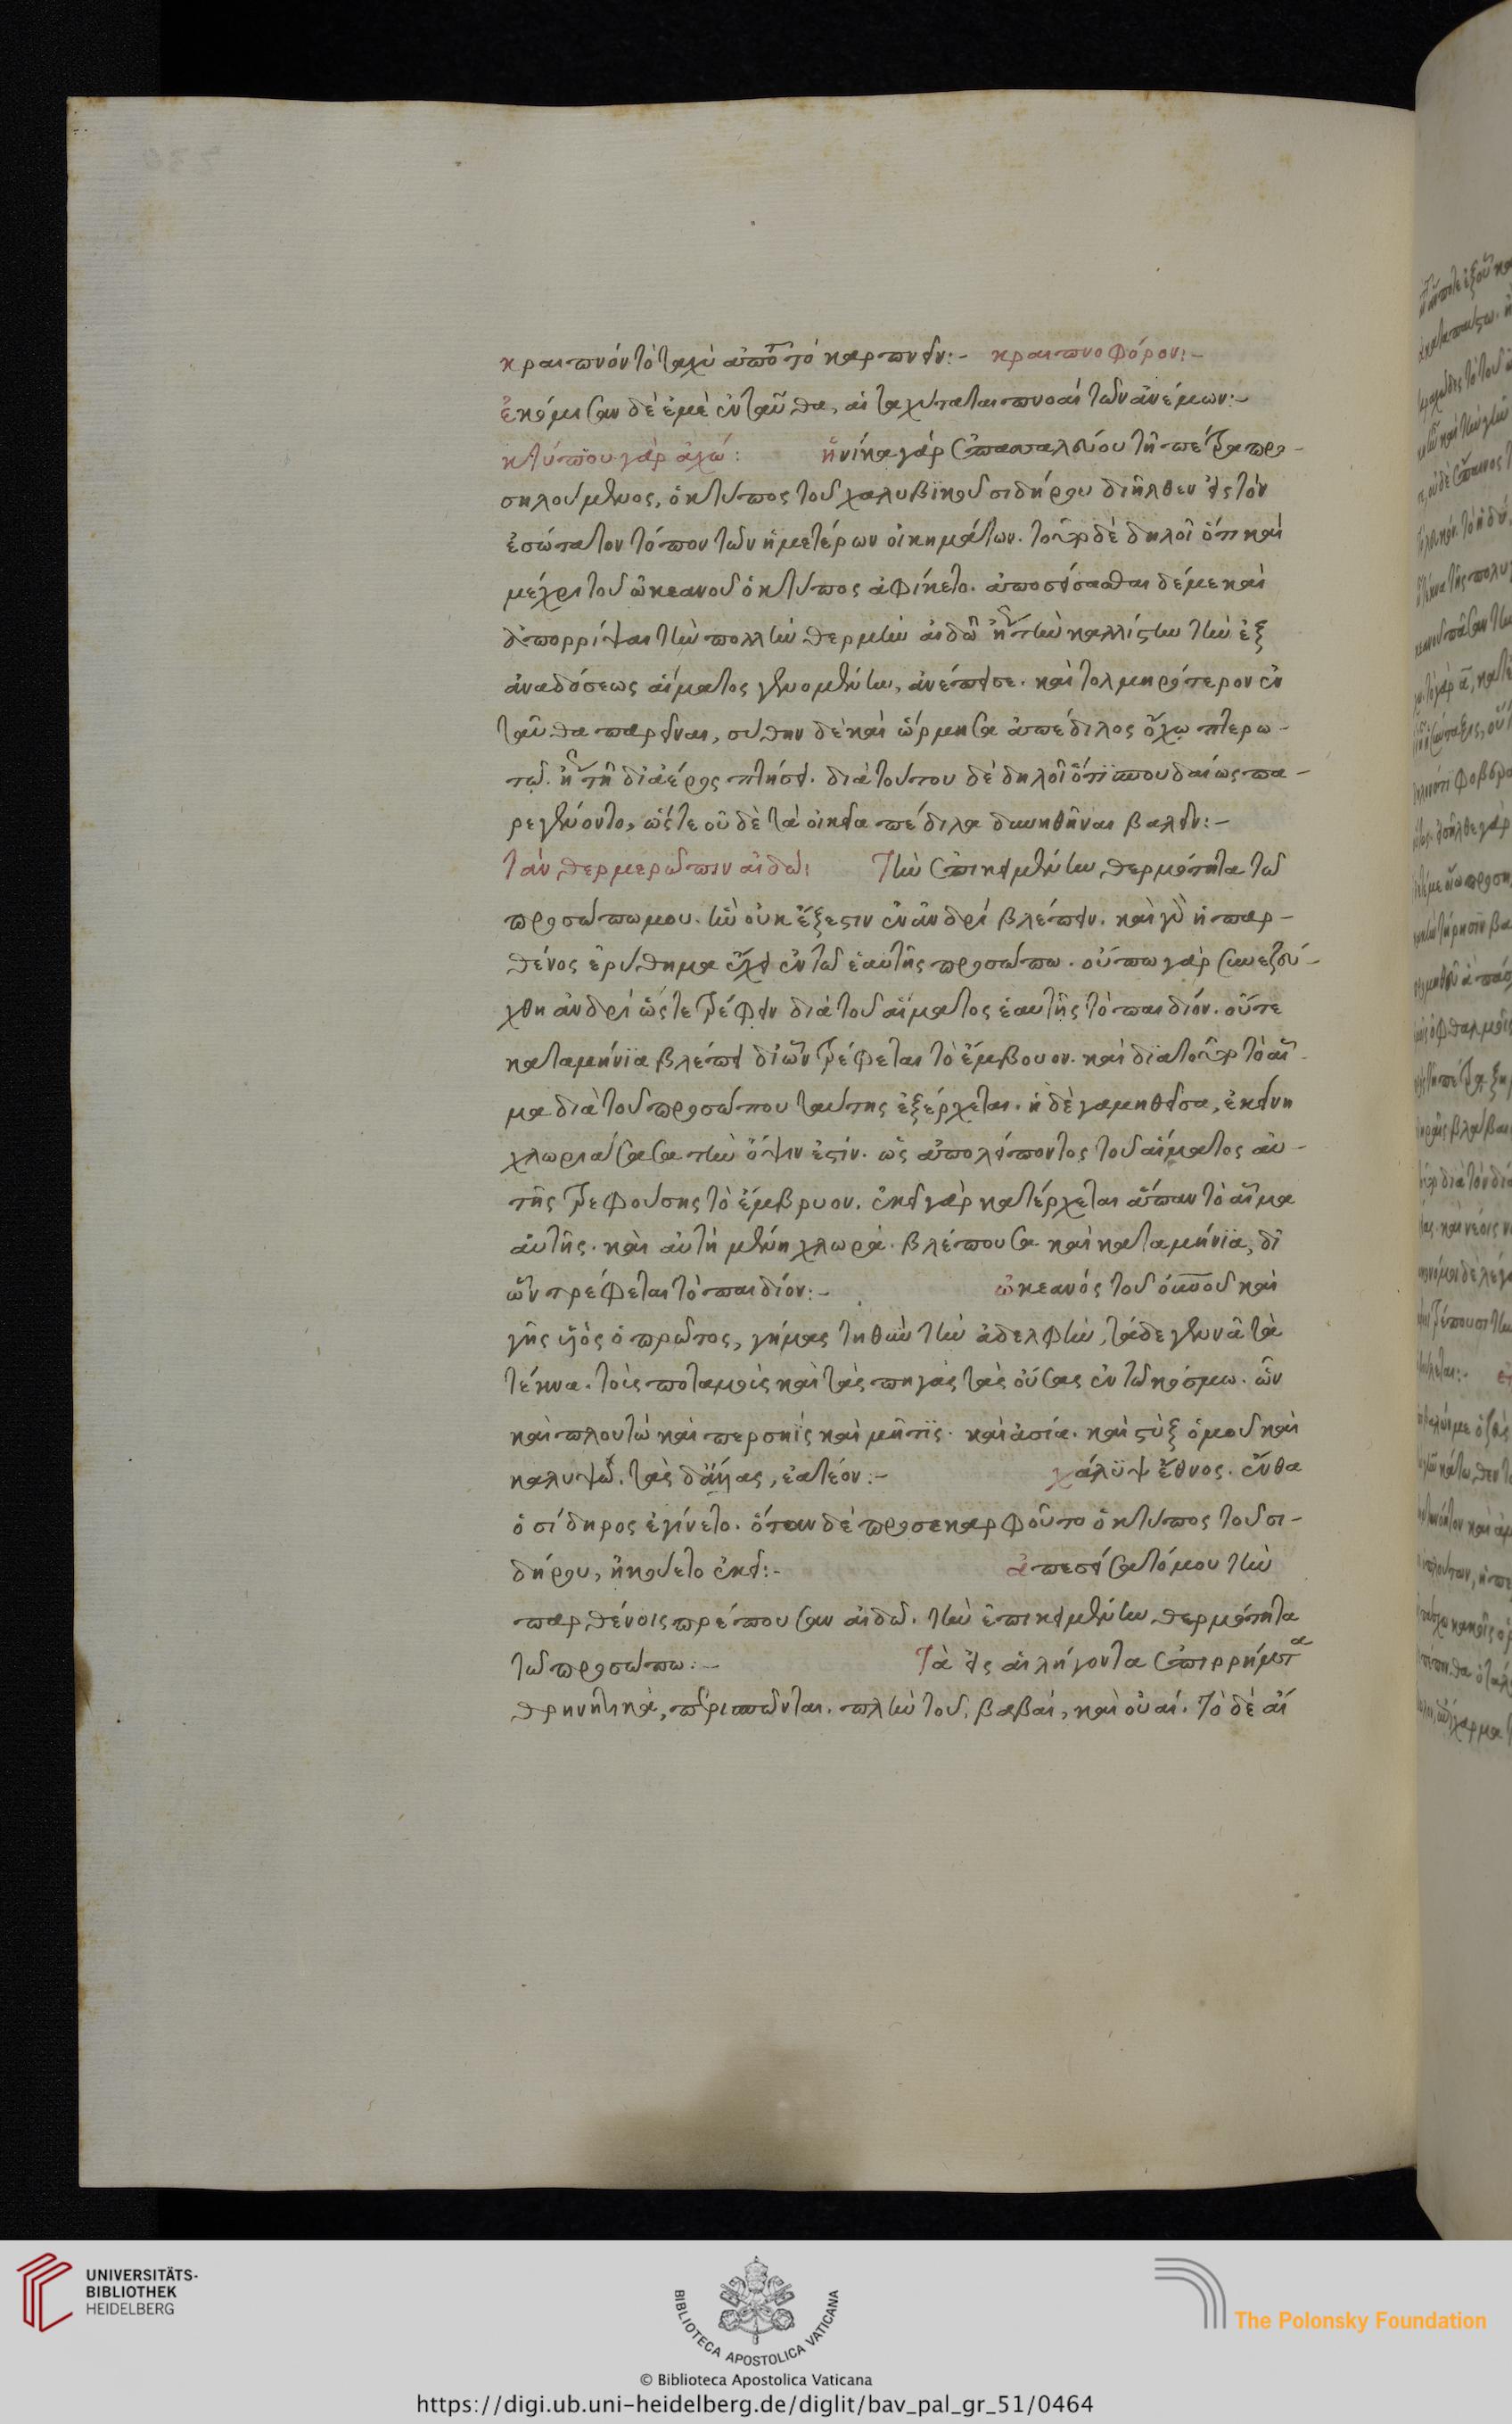 κραιπνόν τὸ ταχὺ ἀπὸ τοῦ τὸ καρπν εῖν:- κραιπνοφόροι:-
ἐκόμισαν δὲ ἐμὲ ἐνταῦθα, αἱ ταχύταται πνοαὶ τῶν ἀνέμων:-
κτύπου γὰρ ἀχώ: ἡνίκα γὰρ ἐπαπαλεύου τῇ πέτρα προ-
σηλούμενος, ὁ κτύπος τοῦ χαλυβϊκοῦ σιδήρου διῆλθεν εἰς τὸν
ἐσώτατον τόπον τῶν ἡμετέρων οἰκημάτων. τοῦτο δὲ δηλοῖ ὅτι καὶ
μέχρι τοῦ ὠκεανοῦ ὁ κτύπος ἀφίκετο. ἀποσείσασθαι δέ με καὶ
ἀπορρίψαι τὴν πολλὴν θερμὴν αἰδῶ ἤγουν τὴν καλλίστην τὴν ἐξ
ἀναδόσεως αἵματος γενομένην, ἀνέπεισε. καὶ τολμηρότερον ἐν
ταῦθα παρεῖναι, σύθην δὲ καὶ ὥρμησα ἀπέδιλος ὄχω πτερω-
τῶ. ἤγουν τῆ δι' ἀέρος πτήσει. διὰ τούτου δὲ δηλοῖ ὅτϊ σπουδαίως πα-
ρεγένοντο, ὥστε οὐδὲ τὰ οἰκεῖα πέδιλα δυνηθῆναι βαλεῖν:-
τὰν θερμερῶπιν αἰδῶ: Τὴν ἐπικειμένην θερμότητα τῶ
προσώπω μου. ἣν οὐκ ἔξεστιν ἐν ἀνδρὶ βλέπειν. καὶ γὰρ ἡ παρ-
θένος ἐρύθημα ἔχει ἐν τῶ ἑαυτῆς προσώπω. οὔπω γὰρ συνεζεύ-
χθη ἀνδρὶ ὥστε τρέφειν διὰ τοῦ αἵματος ἑαυτῆς τὸ παιδίον. οὔτε
καταμήνϊα βλέπει δι' ὧν τρέφεται τὸ ἔμβρυον. καὶ διὰ τοῦτο τὸ αἷ-
μα διὰ τοῦ προσώπου ταύτης ἐξέρχεται. ἡ δὲ γαμηθεῖσα, ἐκείνη
χλωριάσασα τὴν ὄψιν ἐστίν. ὡς ἀπολείποντος τοῦ αἵματος αὐ-
τῆς τρεφούσης τὸ ἔμβρυον. ἐκεῖ γὰρ κατέρχεται ἅπαν τὸ αἷμα
αὐτῆς. καὶ αὐτὴ μένει χλωρά. βλέπουσα καὶ καταμήνϊα, δι'
ὧν τρέφεται τὸ παιδίον:- ὠκεανός τοῦ οὐνοῦ καὶ
γῆς υἱὸς ὁ πρῶτος, γήμας τηθὺν τὴν ἀδελφὴν, τάδε γεννᾶ τὰ
τέκνα. τοὺς ποταμοὺς καὶ τὰς πηγὰς τὰς οὔσας ἐν τῶ κόσμω. ὧν
καὶ πλουτὼ καὶ περσηΐς καὶ μῆτϊς. καὶ ἀσία. καὶ στὺξ ὁμοῦ καὶ
καλυψώ. τὰς δ' ἄλλας, ἐατέον:- χάλϋψ ἔθνος. ἔνθα
ὁ σίδηρος ἐγίνετο. ὅταν δὲ προσεκαρφοῦτο ὁ κτύπος τοῦ σι-
δήρου, ἠκούετο ἐκεῖ:- ἀπεσείσατό μου τὴν
παρθένοις πρέπουσαν αἰδῶ. τὴν ἐπικειμένην θερμότητα
τῶ προσώπω:- Τὰ εἰς αι λήγοντα ἐπιρρήματα
θρηνητικὰ, περισπῶνται. πλὴν τοῦ, βαβαὶ, καὶ οὐαί. Τὸ δὲ αἲ
UNIVERSITÄTS-
BIBLIOTHEK
HEIDELBERG
BIBLIOTECA APOSTOLICA VATICANA
The Polonsky Foundation
© Biblioteca Apostolica Vaticana
https://digi.ub.uni-heidelberg.de/diglit/bav_pal_gr_51/0464